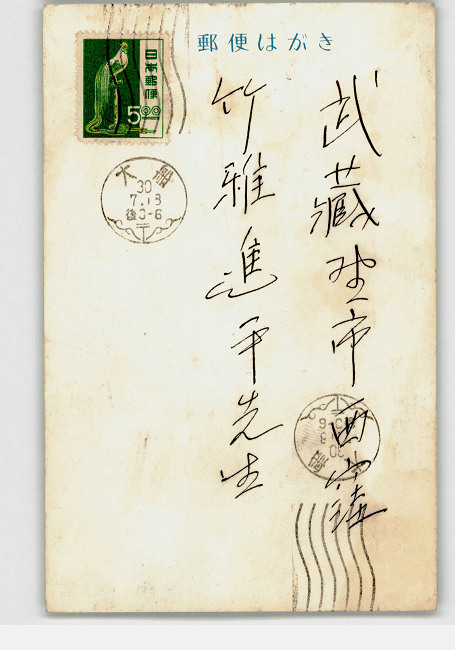 郵便はがき
日本郵便
5.00
大船
30
7.18
後0-6
武蔵野市西窪
竹雅進平先生